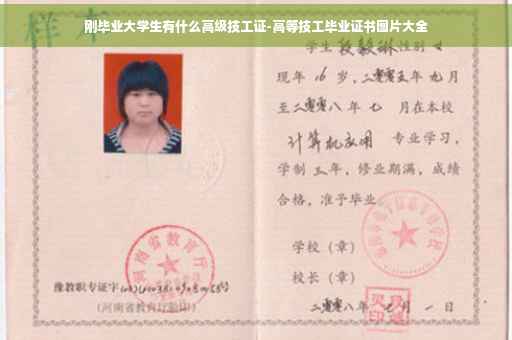 刚毕业大学生有什么高级技工证-高等技工毕业证书图片大全
样本
学生 段毅琳 性别 女
现年 16 岁，二零零五年 九月
至二零零八年 七 月在本校
计算机应用 专业学习，
学制 三年，修业期满，成绩
合格，准予毕业
学校（章）
校长（章）
二零零八年 七 月 一 日
河南省教育厅
豫教职专证字
（河南省教育厅验印）